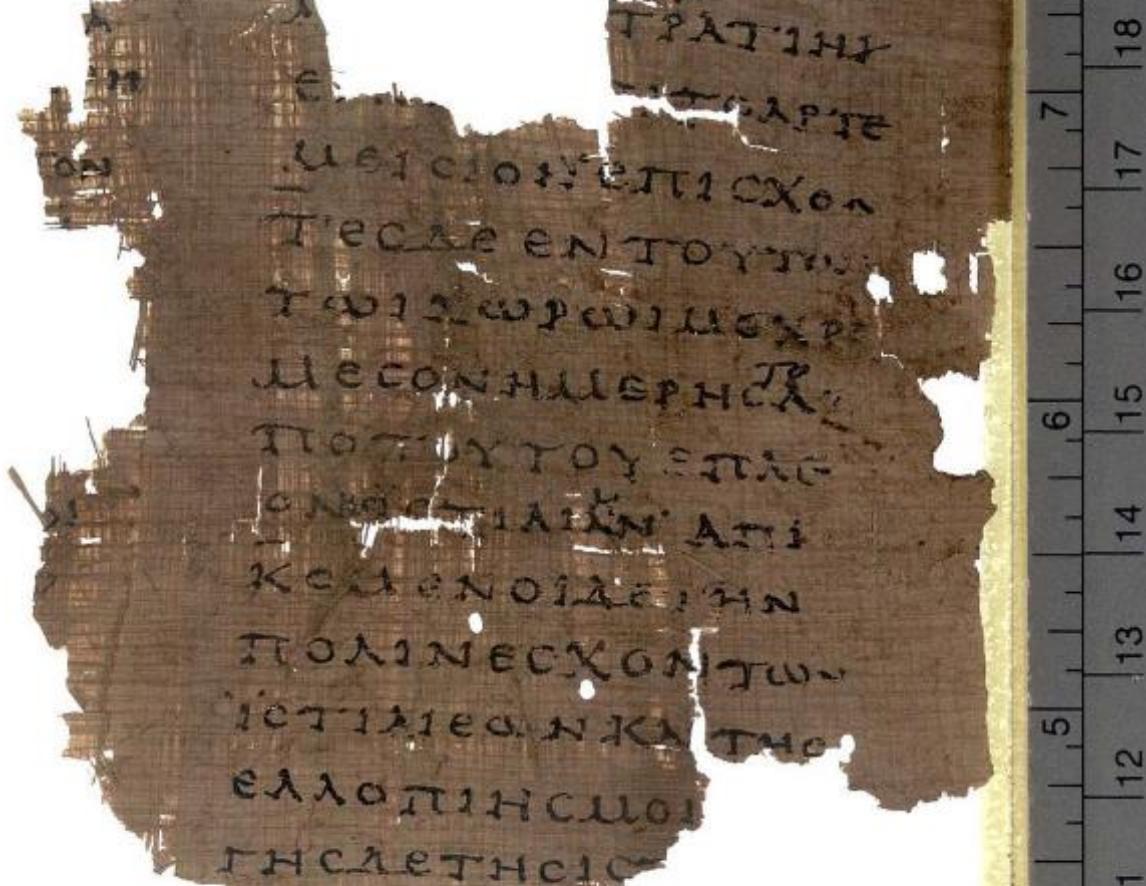 ΤΡΑΤΙΗΝ
ΑΡΤΕ
ΜΕΙΣΙΟΝ ΕΠΙΣΧΟΝ
ΤΕΣΔΕ ΕΝ ΤΟΥΤΩΙ
ΤΩΙΧΩΡΩΙΜΕΧΡΙ
ΜΕΣΟΝΗΜΕΡΗΣΤΟΑ
ΠΟΤΟΥΤΟΥ ΕΠΛΕ
ΟΝ ΑΠΙ
ΚΟΜΕΝΟΙΔΕΤΗΝ
ΠΟΛΙΝΕΣΧΟΝΤΩΝ
ΙΣΤΙΑΙΕΩΝΚΑΙΤΗΣ
ΕΛΛΟΠΙΗΣΜΟΙ
ΓΗΣΔΕΤΗΣΙΣ
18
17
16
15
14
13
12
7
6
5